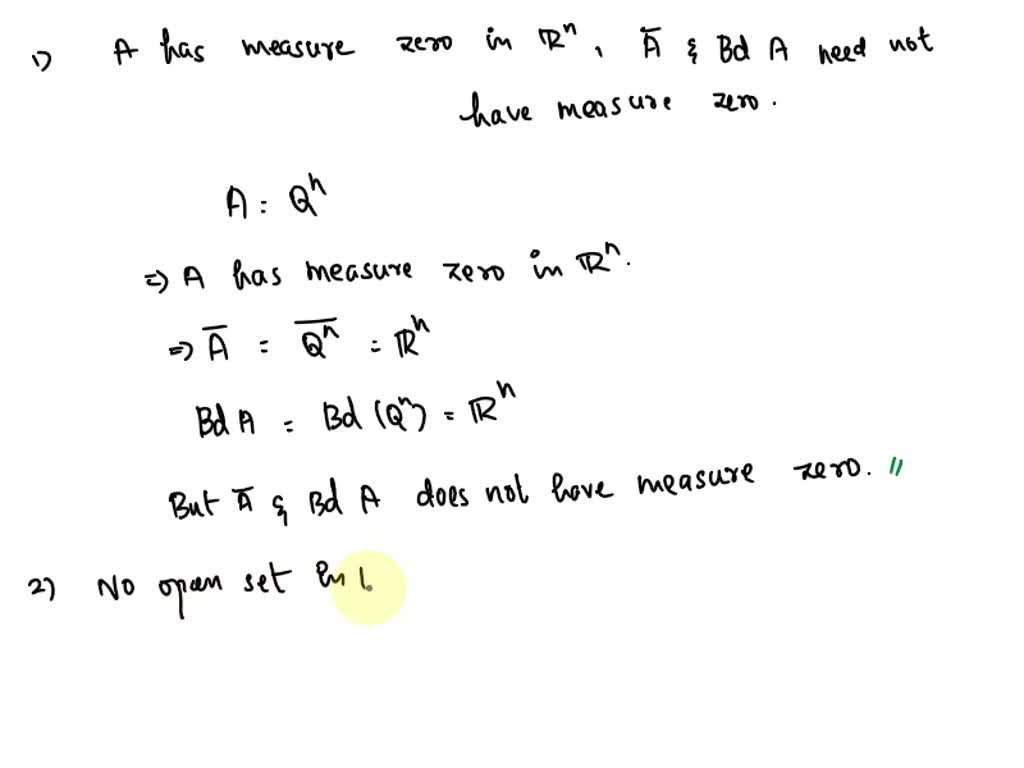 1) A has measure zero in ℝⁿ, A̅ & Bd A need not
have measure zero.
A = Qⁿ
⇒ A has measure zero in ℝⁿ.
⇒ A̅ = Q̅ⁿ̅ = ℝⁿ
Bd A = Bd (Qⁿ) = ℝⁿ
But A̅ & Bd A does not have measure zero. //
2) No open set in